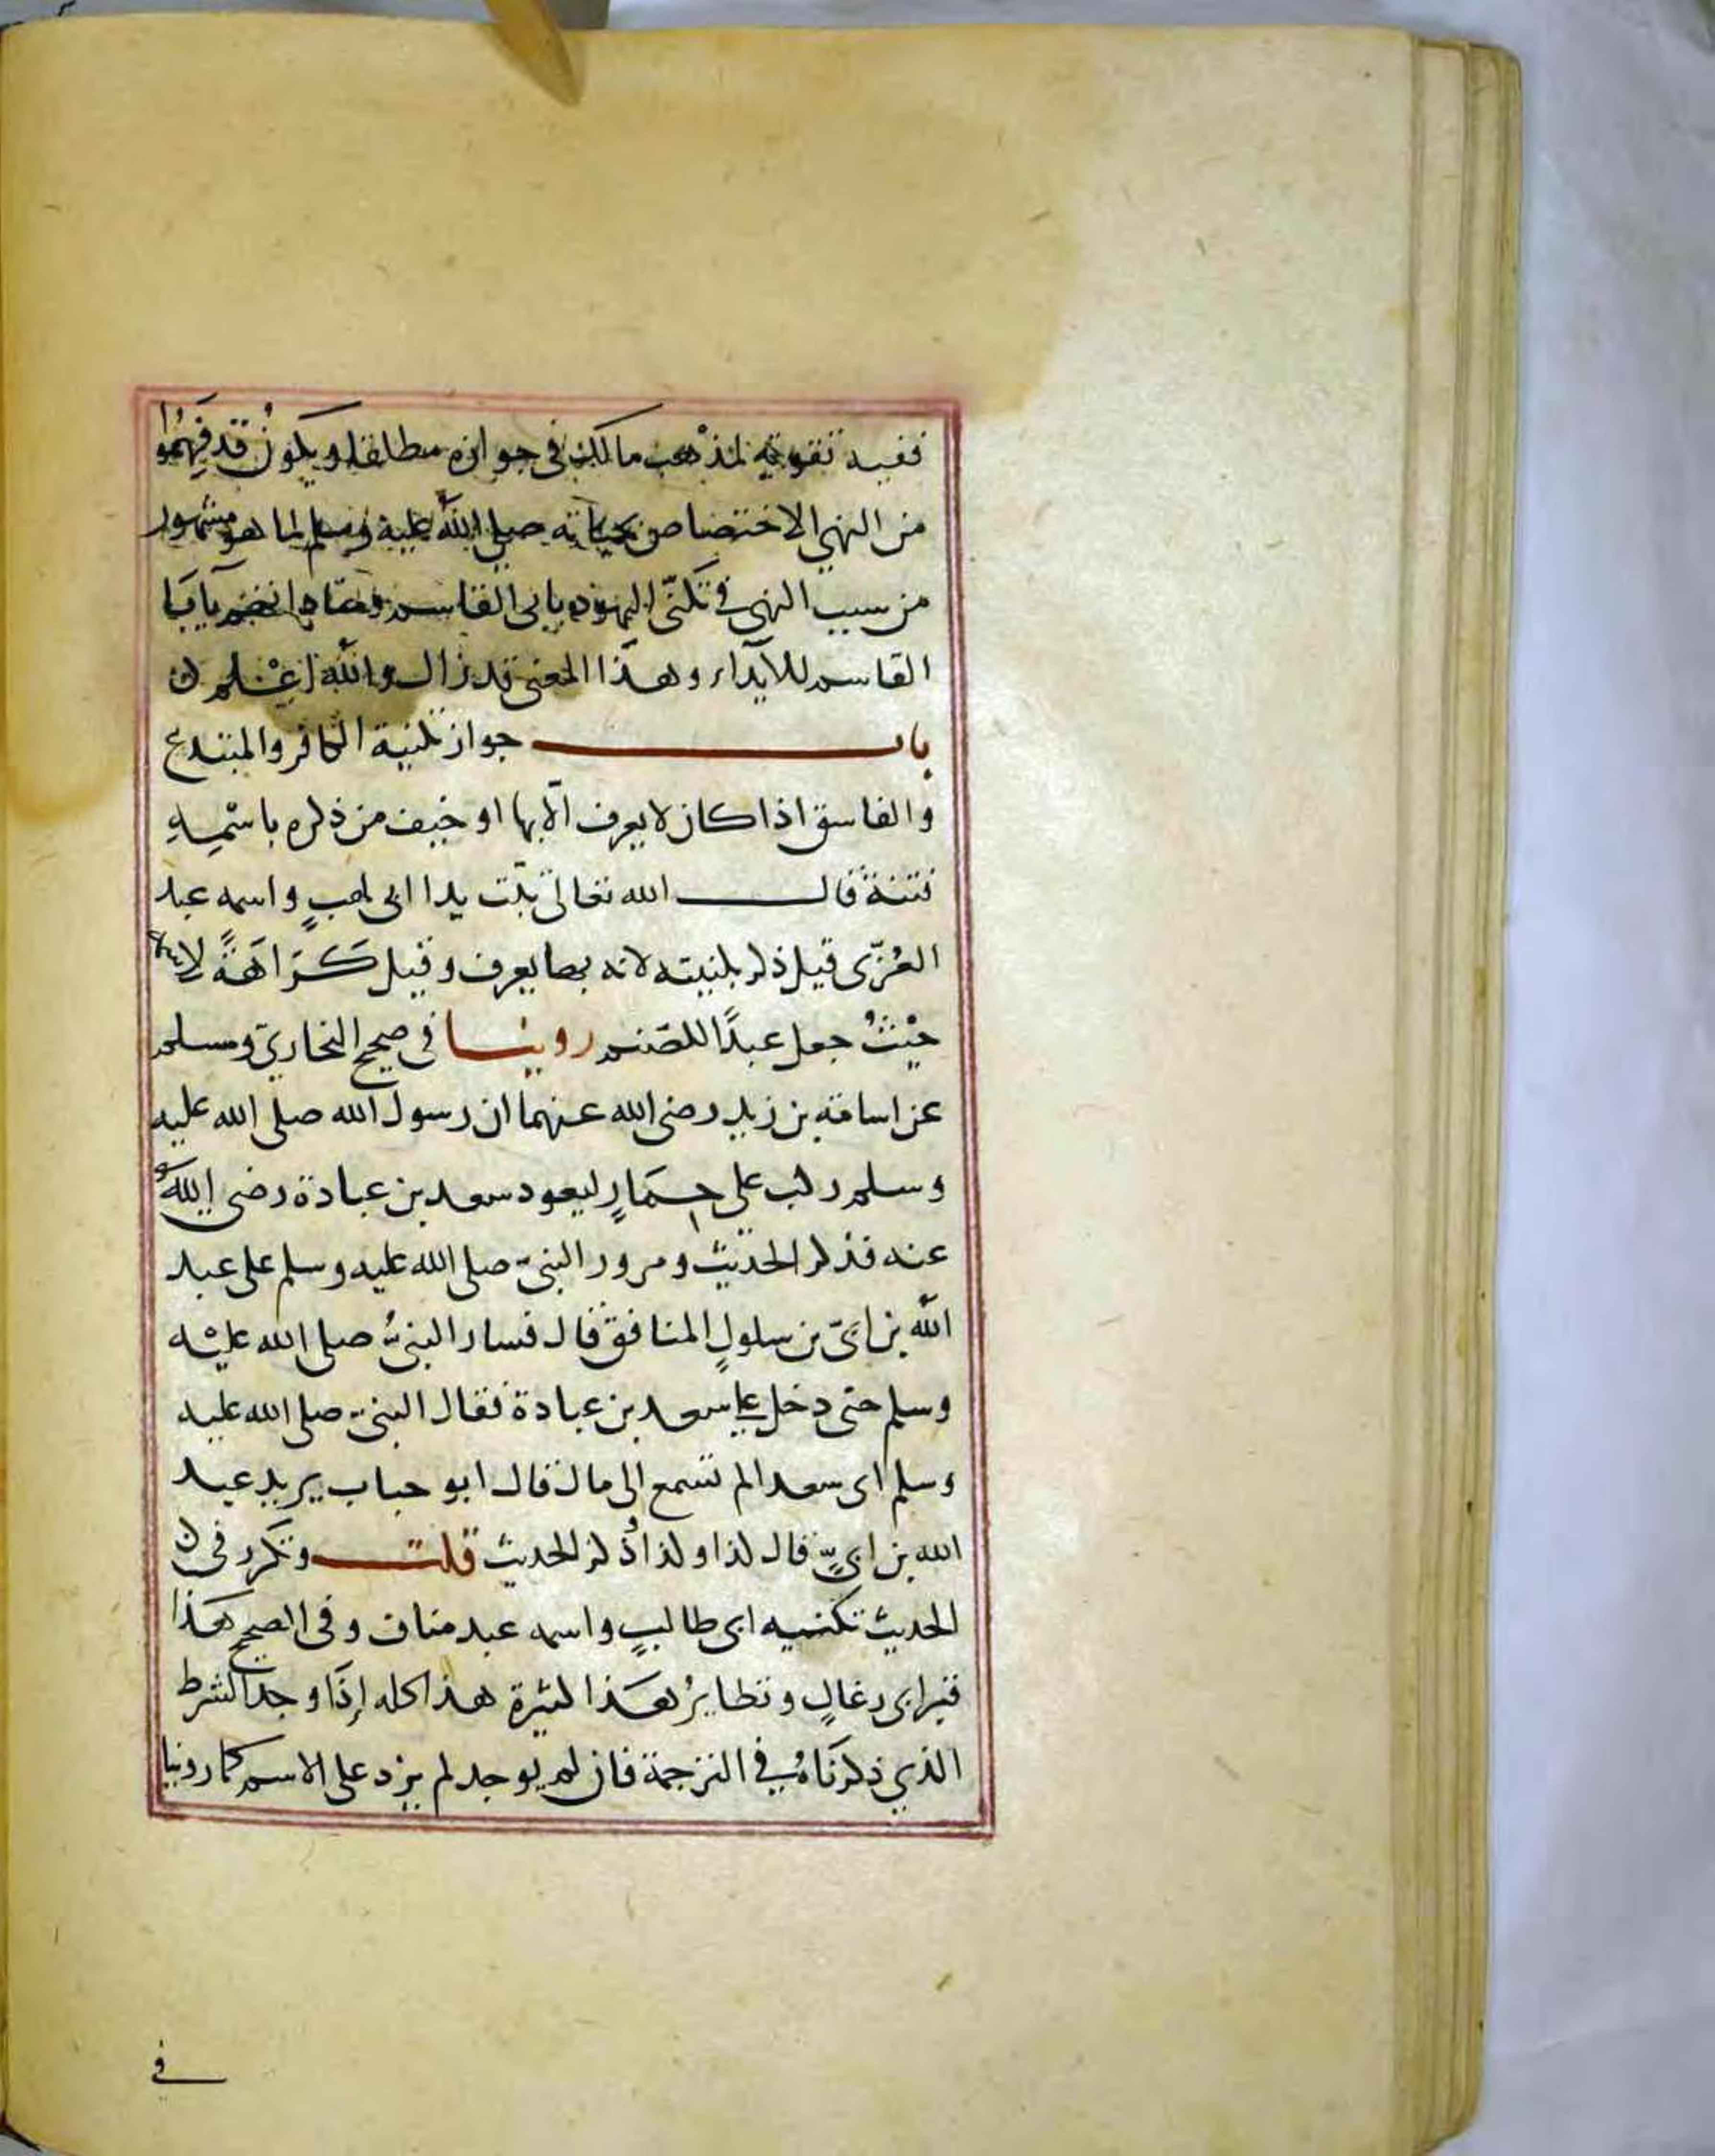 ففيه تقوية لمذهب مالك في جوازه مطلقا ويكون قد فَهِمُوا
من النهي الاختصاص بحياته صلى الله عليه وسلم لما هو مشهور
من سبب النهي في تكنّي اليهود بابى القاسم ومناداتهم يا ابا
القاسم للايذاء وهذا المعنى قد زال والله اعلم
باب جواز تكنية الكافر والمبتدع
والفاسق اذا كان لا يعرف الّا بها او خيف من ذكره باسْمِهِ
فتنة قال الله تعالى تبّت يدا ابى لهبٍ واسمه عبد
العُزّى قيل ذكر بكنيته لانه بها يعرف وقيل كَرَاهَةً لاسمه
حَيْثُ جعل عبدًا للصّنم روينا في صحيح البخاريّ ومسلم
عن اسامة بن زيد رضى الله عنهما ان رسول الله صلى الله عليه
وسلم ركب على حِمَارٍ ليعود سعد بن عبادة رضى اللهُ
عنه فذكر الحديث ومرور النبيّ صلى الله عليه وسلم على عبد
الله بن ابىّ بن سلولٍ المنافق قال فسار النبىُّ صلى الله عليْه
وسلم حتى دخل على سعد بن عبادة فقال النبيّ صلى الله عليه
وسلم اى سعد الم تسمع الى ما قال ابو حباب يريد عبد
الله بن ابىٍّ قال كذا وكذا وذُكر الحديث قلت وتكرر في
الحديث تكنيه ابى طالبٍ واسمه عبد مناف وفى الصحيح هذا
قبر ابى رغالٍ ونظايرُ هَذا كثيرة هذا كله إذا وجد الشرط
الذي ذكرنَاهُ في الترجمة فان لم يوجد لم يزد على الاسم كما روينا
في